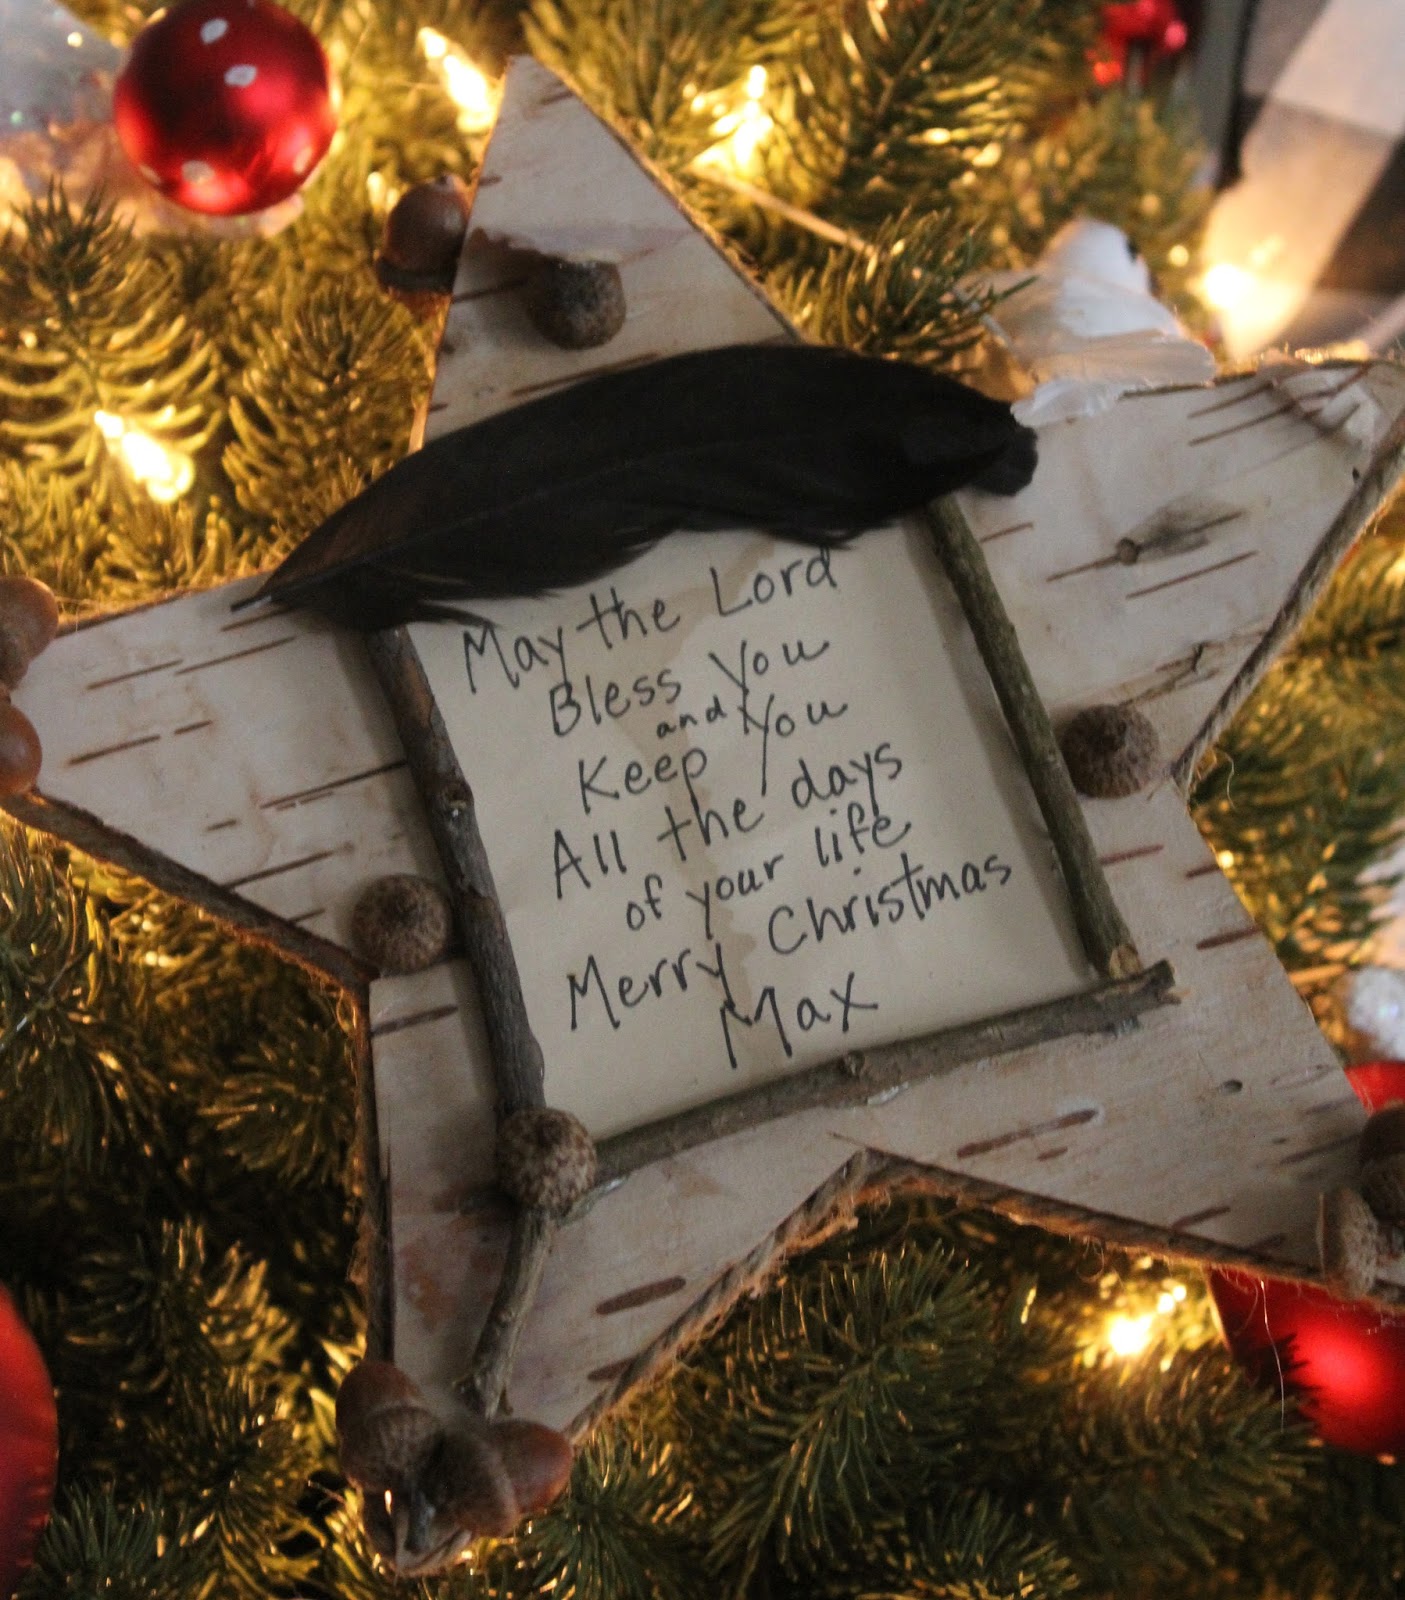 May the Lord
Bless You
and
Keep You
All the days
of your life
Merry Christmas
Max